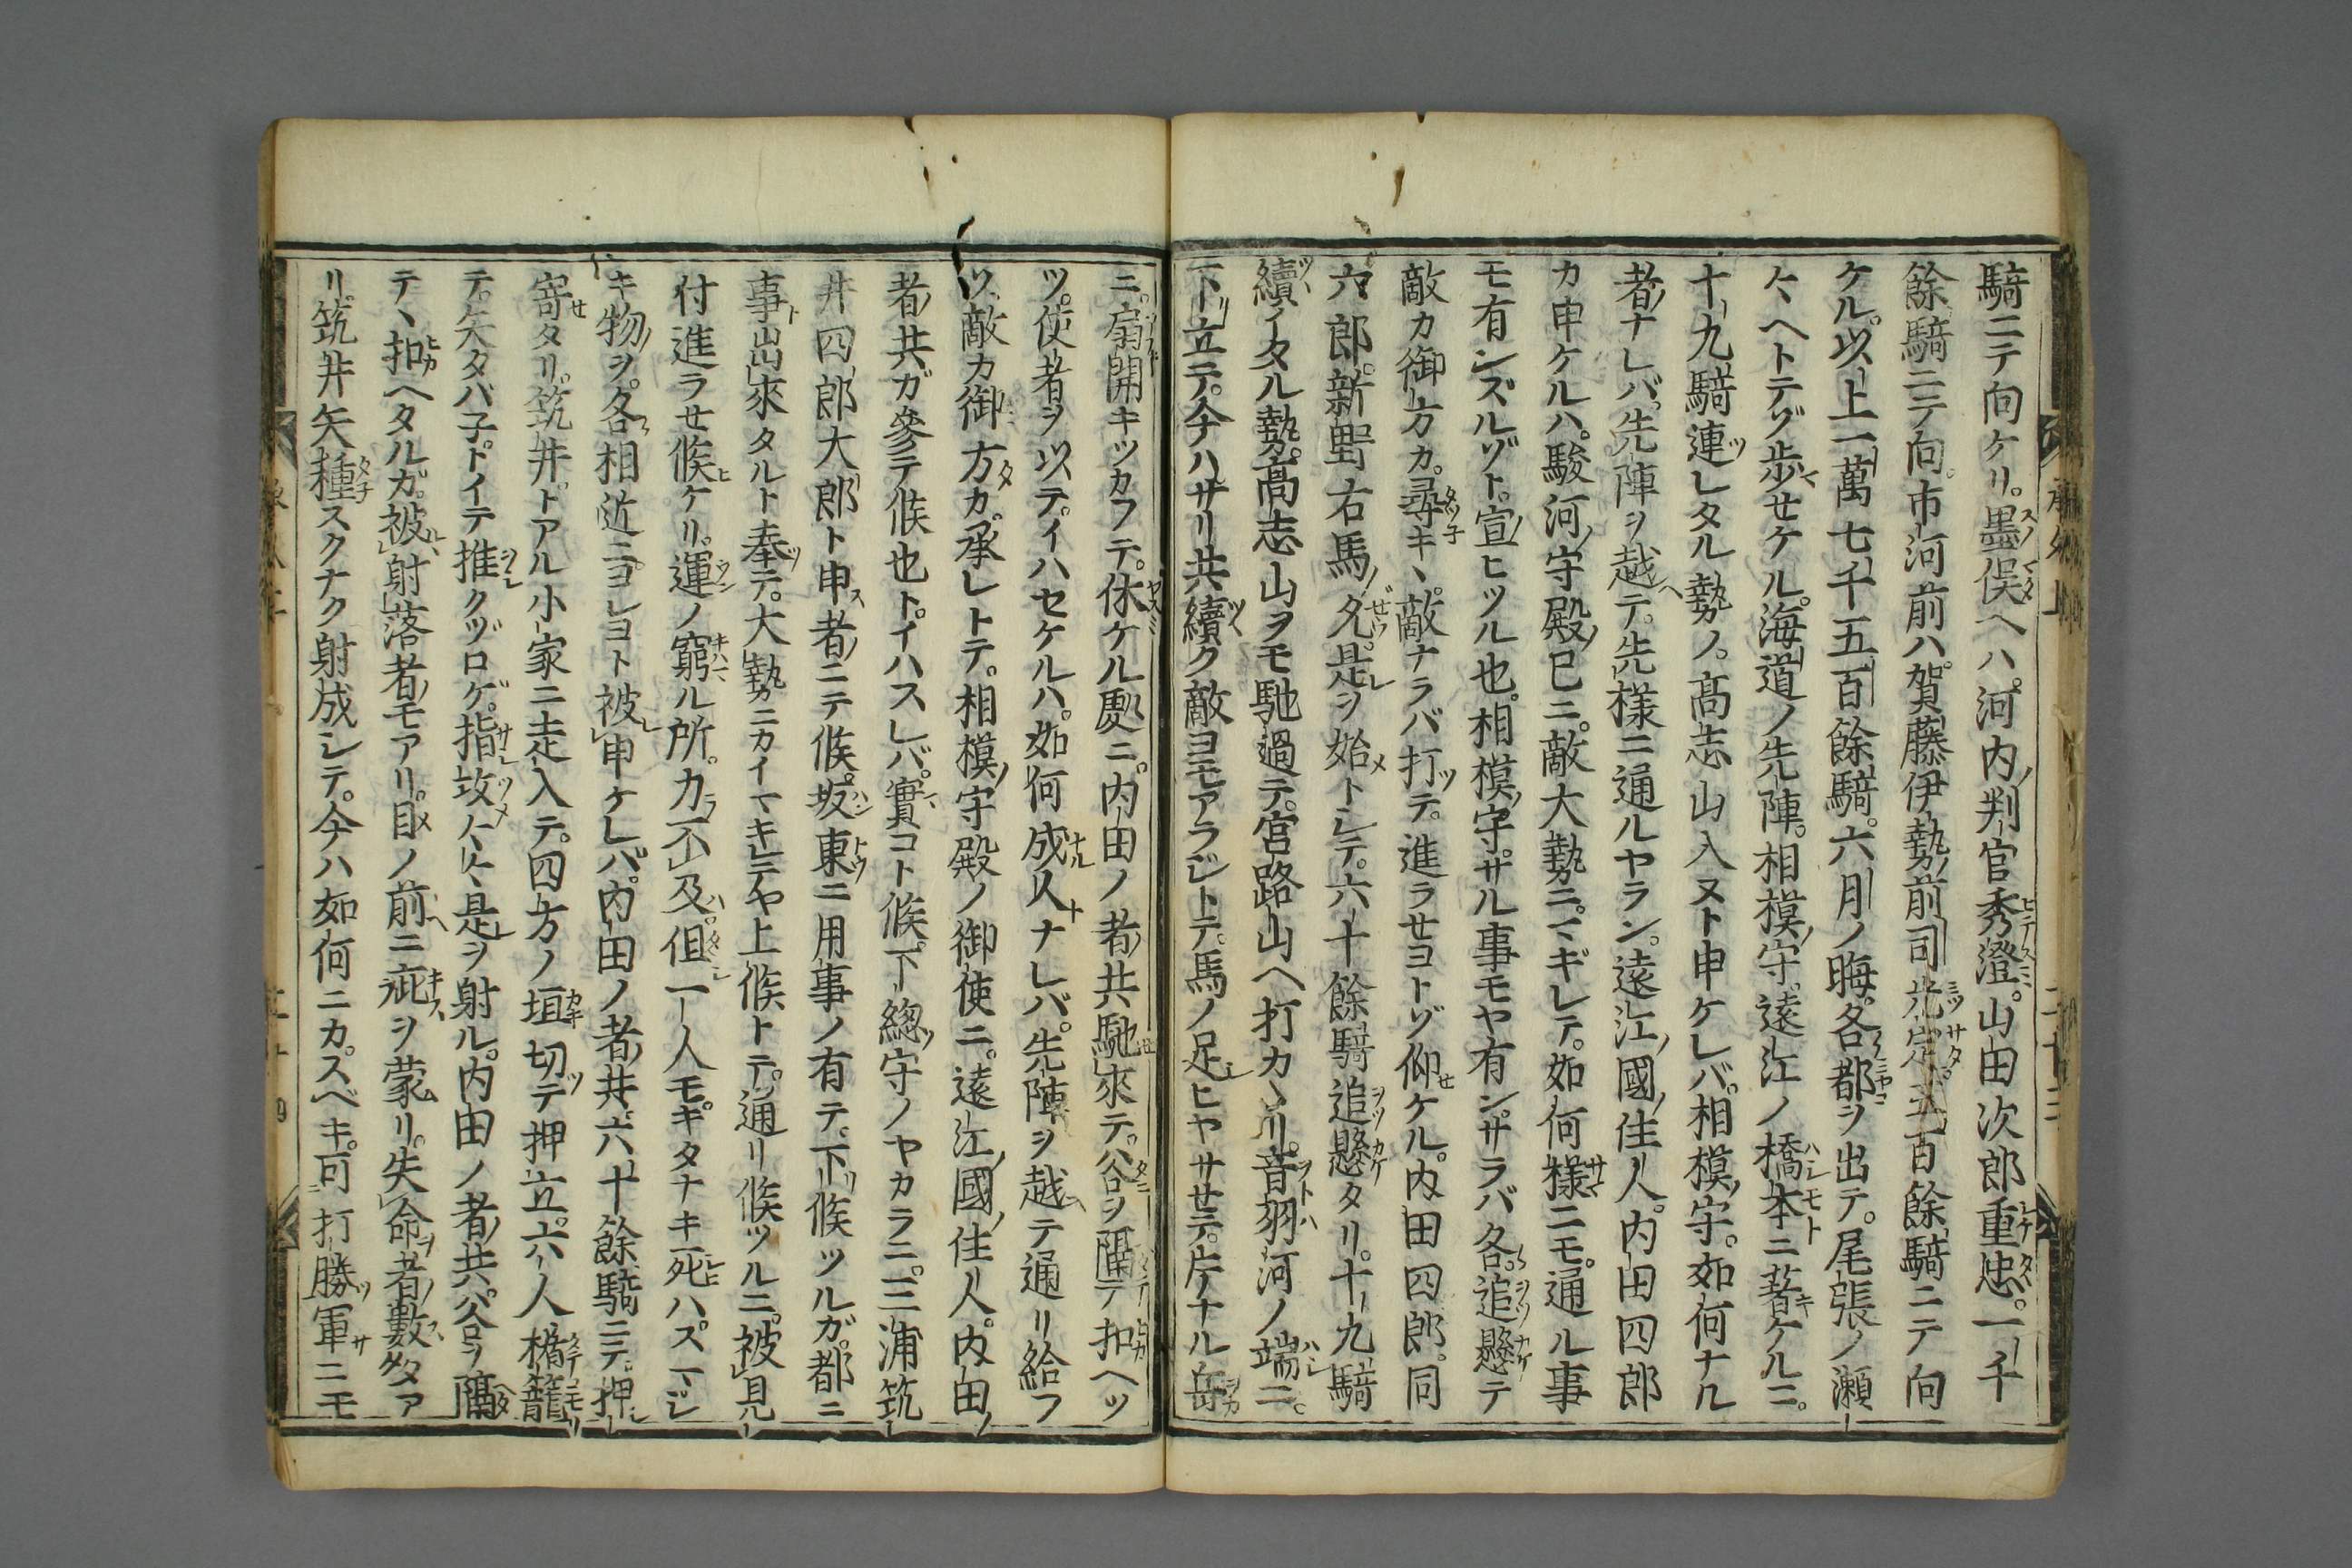 騎ニテ向ケリ。墨俣ヘハ。河内ノ判官秀澄。山田次郎重忠。一千
餘騎ニテ向。市河前ハ。賀藤伊勢前司光定。五百餘騎ニテ向
ケル。以上一萬七千五百餘騎。六月ノ晦。各都ヲ出テ。尾張ノ瀬
々ヘトテゾ歩セケル。海道ノ先陣。相模守。遠江ノ橋本ニ著ケルニ。
十九騎連レタル勢ノ。高志山入ヌト申ケレバ。相模守。如何ナル
者ナレバ。先陣ヲ越テ。先樣ニ通ルヤラン。遠江國ノ住人。内田四郎
カ申ケルハ。駿河守殿ノ已ニ。敵大勢ニ。マギレテ。如何樣ニモ。通ル事
モ有ンズルゾト。宣ヒツル也。相模守。サル事モヤ有ン。サラバ各。追懸テ
敵カ御方カ。尋キヽ。敵ナラバ打テ。進ラセヨトゾ仰ケル。内田四郎。同
六郎。新野右馬ノ允。是ヲ始トシテ。六十餘騎追懸タリ。十九騎
續イタル勢。高志山ヲモ馳過テ。宮路山ヘ打カヽリ。音羽河ノ端ニ。
下立テ。今ハサリ共續ク敵ヨモアラジトテ。馬ノ足ヒヤサセテ。片ナル岳
ニ。扇開キツカフテ。休ケル處ニ。内田ノ者共馳來テ。谷ヲ隔テ扣ヘツ
ツ。使者ヲ以テ。イハセケルハ。如何成人ナレバ。先陣ヲ越テ通リ給フ
ソ。敵カ御方カ。承レトテ。相模守殿ノ御使ニ。遠江國ノ住人。内田ノ
者共ガ參テ候也ト。イハスレバ。實コト候。下總守ノヤカラニ。三浦筑
井四郎大郎ト申者ニテ候。坂東ニ用事ノ有テ。下候ツルガ。都ニ
事出來タルト奉テ。大勢ニカイマキレテヤ上候トテ。通リ候ツルニ。被見
付進ラセ候ケリ。運ノ窮ル所。力不及。但一人モギタナキ死ハスマジ
キ物ヲ。各相近ニヨレヨト被申ケレバ。内田ノ者共六十餘騎ニテ。押
寄タリ。筑井。トアル小家ニ走入テ。四方ノ垣切テ押立。六人楯籠
テ。矢タバ子トイテ推クヅロゲ。指攻々々是ヲ射ル。内田ノ者共。谷ヲ隔
テヽ扣ヘタルガ。被射落者モアリ。目ノ前ニ疵ヲ蒙リ。失命者數タア
リ。筑井矢種スクナク射成シテ。今ハ如何ニカ。スベキ。可打勝軍ニモ